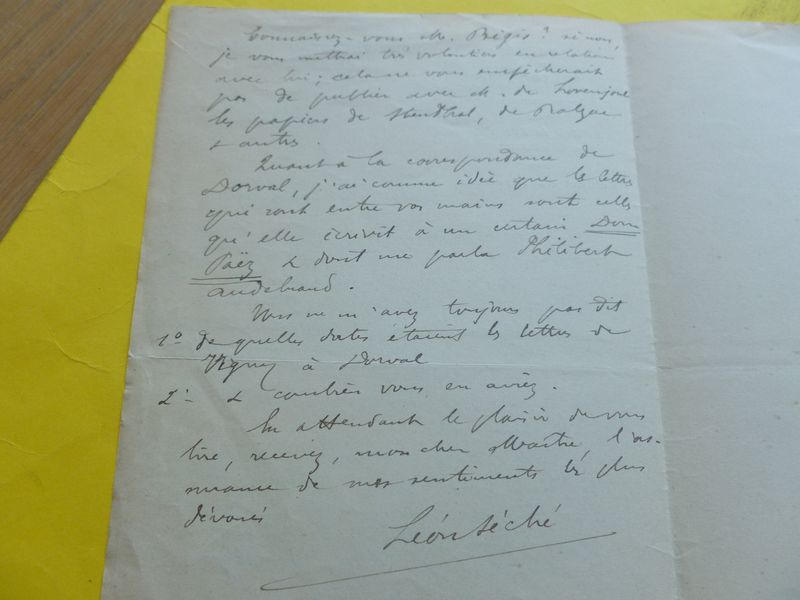 Connaissez-vous M. Régis ? si non,
je vous mettrai très volontiers en relation
avec lui ; cela ne vous empêcherait
pas de publier avec M. de Lovenjoul
les papiers de Stendhal, de Balzac
& autres.
Quant à la correspondance de
Dorval, j'ai comme idée que les lettres
qui sont entre vos mains sont celles
qu'elle écrivit à un certain Dom
Paëz & dont me parla Philibert
Audebrand.
Vous ne m'avez toujours pas dit
1º de quelles dates étaient les lettres de
Vigny à Dorval
2º - & combien vous en aviez.
En attendant le plaisir de vous
lire, recevez, mon cher Maître, l'as-
surance de mes sentiments les plus
dévoués
Léon Séché